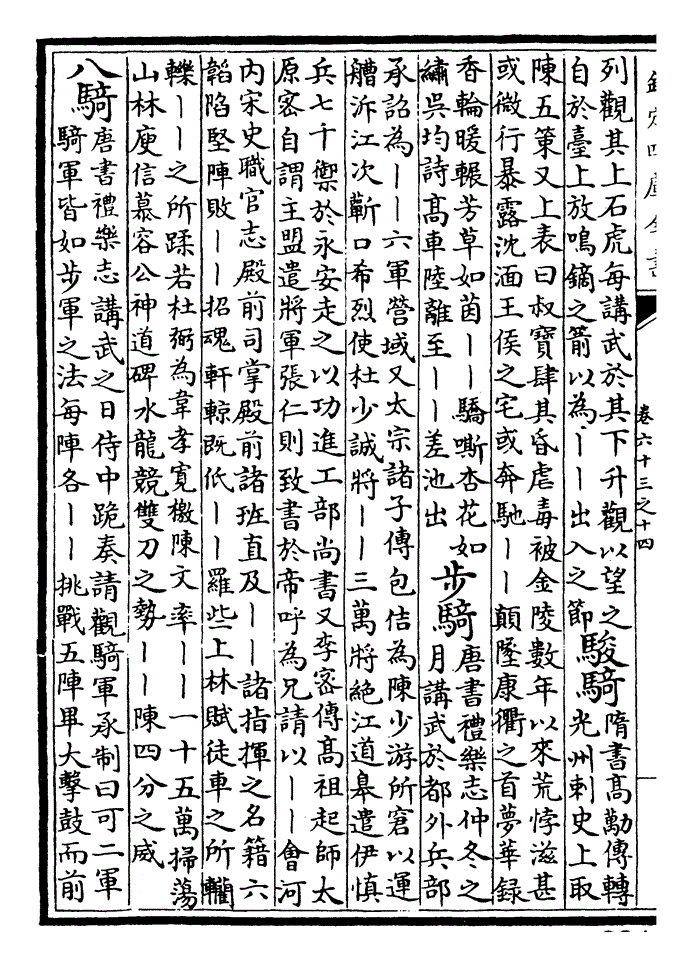 欽定四庫全書
卷六十三之十四
列觀其上石虎每講武於其下升觀以望之
自於臺上放鳴鏑之箭以為丨丨出入之節
駿騎
隋書高勱傳轉
光州刺史上取
陳五策又上表曰叔寶肆其昏虐毒被金陵數年以來荒悖滋甚
或微行暴露沈湎王侯之宅或奔馳丨丨顛墜康衢之首夢華録
香輪暖輾芳草如茵丨丨驕嘶杏花如
繡吳均詩高車陸離至丨丨差池出
步騎
唐書禮樂志仲冬之
月講武於都外兵部
承詔為丨丨六軍營域又太宗諸子傳包佶為陳少游所窘以運
艚泝江次蘄口希烈使杜少誠將丨丨三萬將絕江道臯遣伊慎
兵七千禦於永安走之以功進工部尚書又李密傳高祖起師太
原密自謂主盟遣將軍張仁則致書於帝呼為兄請以丨丨會河
内宋史職官志殿前司掌殿前諸班直及丨丨諸指揮之名籍六
韜陷堅陣敗丨丨招魂軒輬既低丨丨羅些上林賦徒車之所轥
轢丨丨之所蹂若杜弼為韋孝寬檄陳文率丨丨一十五萬掃蕩
山林庾信慕容公神道碑水龍競雙刀之勢丨丨陳四分之威
八騎
唐書禮樂志講武之日侍中跪奏請觀騎軍承制曰可二軍
騎軍皆如步軍之法每陣各丨丨挑戰五陣畢大擊鼓而前